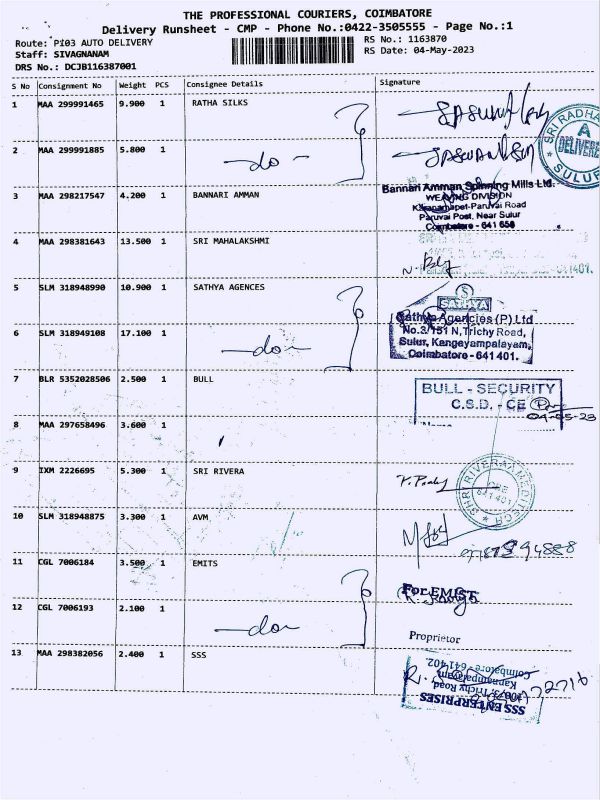 THE PROFESSIONAL COURIERS, COIMBATORE
Delivery Runsheet - CMP - Phone No.:0422-3505555 - Page No.:1
Route: PI03 AUTO DELIVERY
RS No.: 1163870
Staff: SIVAGNANAM
RS Date: 04-May-2023
DRS No.: DCJB116387001
S No Consignment No Weight PCS Consignee Details Signature
1 MAA 299991465 9.900 1 RATHA SILKS
SRI RADHA
A
DELIVERE
SULUR
2 MAA 299991885 5.800 1 -do-
3 MAA 298217547 4.200 1 BANNARI AMMAN
Bannari Amman Spinning Mills Ltd.
WEAVING DIVISION
Karanampet-Paruvai Road
Paruvai Post, Near Sulur
Coimbatore - 641 658
4 MAA 298381643 13.500 1 SRI MAHALAKSHMI
5 SLM 318948990 10.900 1 SATHYA AGENCES
S
SATHYA
Sathya Agencies (P) Ltd
No.3/151 N, Trichy Road,
Sulur, Kangeyampalayam,
Coimbatore - 641 401.
6 SLM 318949108 17.100 1 -do-
7 BLR 5352028506 2.500 1 BULL
BULL - SECURITY
C.S.D. - CE
04-05-23
Name
8 MAA 297658496 3.600 1
9 IXM 2226695 5.300 1 SRI RIVERA
10 SLM 318948875 3.300 1 AVM
11 CGL 7006184 3.500 1 EMITS
For EMIST
12 CGL 7006193 2.100 1 -do-
Proprietor
13 MAA 298382056 2.400 1 SSS
SSS ENTERPRISES
Trichy Road
Coimbatore - 641 402.